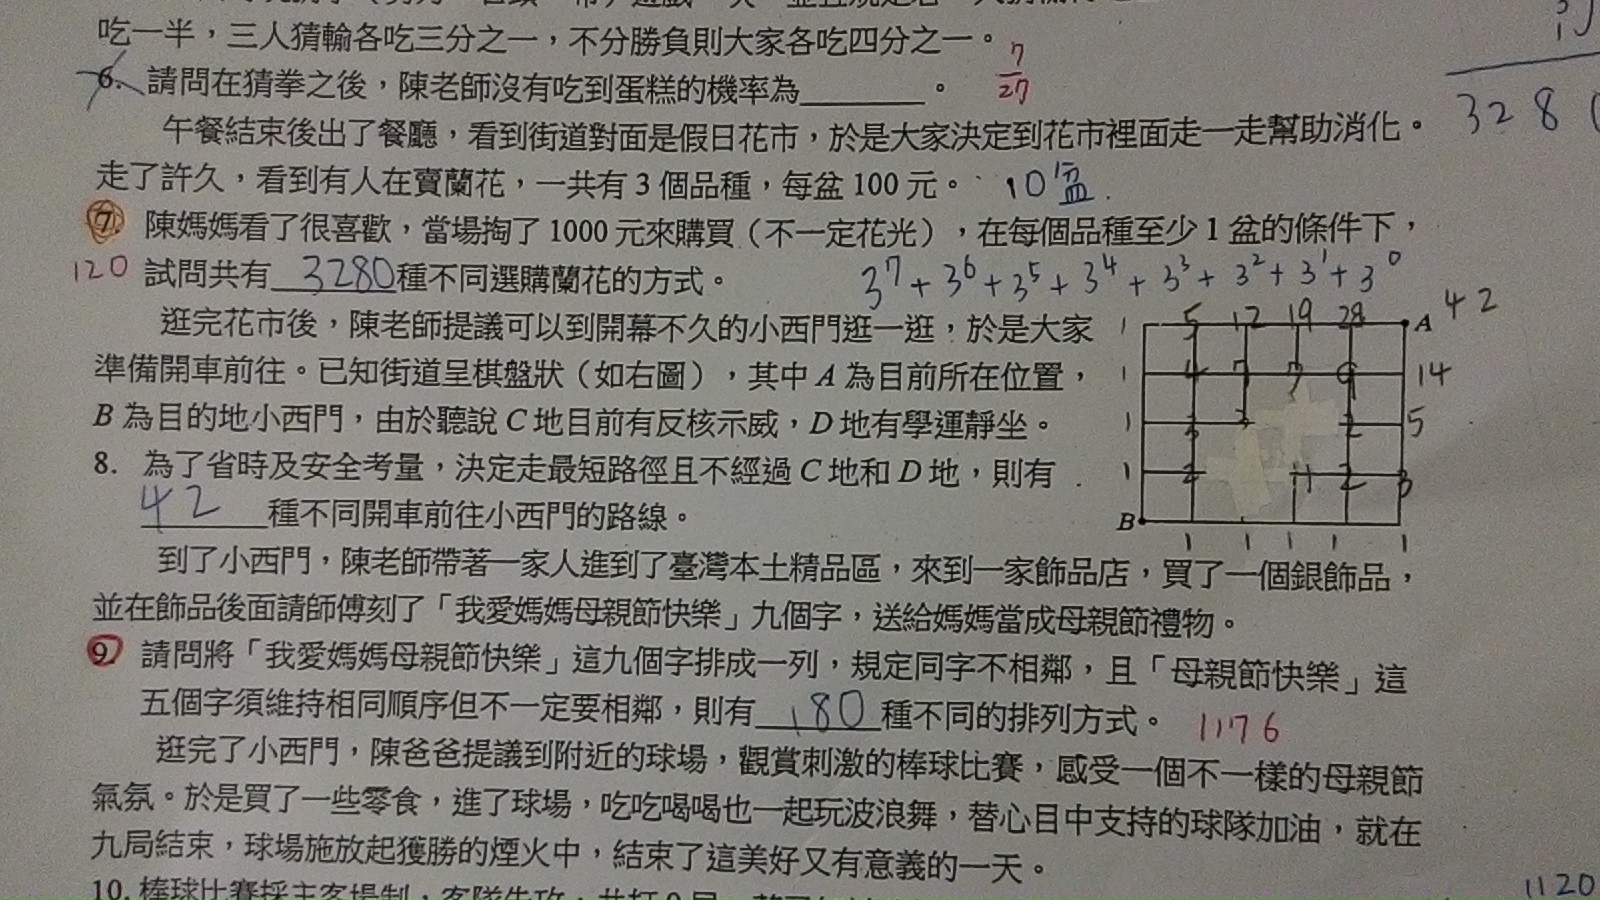 吃一半，三人猜輸各吃三分之一，不分勝負則大家各吃四分之一。
6. 請問在猜拳之後，陳老師沒有吃到蛋糕的機率為________。 7/27
午餐結束後出了餐廳，看到街道對面是假日花市，於是大家決定到花市裡面走一走幫助消化。 3280
走了許久，看到有人在賣蘭花，一共有 3 個品種，每盆 100 元。 10盆
7. 陳媽媽看了很喜歡，當場掏了 1000 元來購買（不一定花光），在每個品種至少 1 盆的條件下，
120 試問共有 3280 種不同選購蘭花的方式。 3^7+3^6+3^5+3^4+3^3+3^2+3^1+3^0
逛完花市後，陳老師提議可以到開幕不久的小西門逛一逛，於是大家
準備開車前往。已知街道呈棋盤狀（如右圖），其中 A 為目前所在位置，
B 為目的地小西門，由於聽說 C 地目前有反核示威，D 地有學運靜坐。
8. 為了省時及安全考量，決定走最短路徑且不經過 C 地和 D 地，則有
42 種不同開車前往小西門的路線。
1 5 12 19 28 A 42
1 4 7 7 9 14
1 3 3 2 5
1 2 1 2 3
B
1 1 1 1 1
到了小西門，陳老師帶著一家人進到了臺灣本土精品區，來到一家飾品店，買了一個銀飾品，
並在飾品後面請師傅刻了「我愛媽媽母親節快樂」九個字，送給媽媽當成母親節禮物。
9. 請問將「我愛媽媽母親節快樂」這九個字排成一列，規定同字不相鄰，且「母親節快樂」這
五個字須維持相同順序但不一定要相鄰，則有 180 種不同的排列方式。 1176
逛完了小西門，陳爸爸提議到附近的球場，觀賞刺激的棒球比賽，感受一個不一樣的母親節
氣氛。於是買了一些零食，進了球場，吃吃喝喝也一起玩波浪舞，替心目中支持的球隊加油，就在
九局結束，球場施放起獲勝的煙火中，結束了這美好又有意義的一天。
10. 棒球比賽採主客場制，客隊先攻，共打 9 局
1120